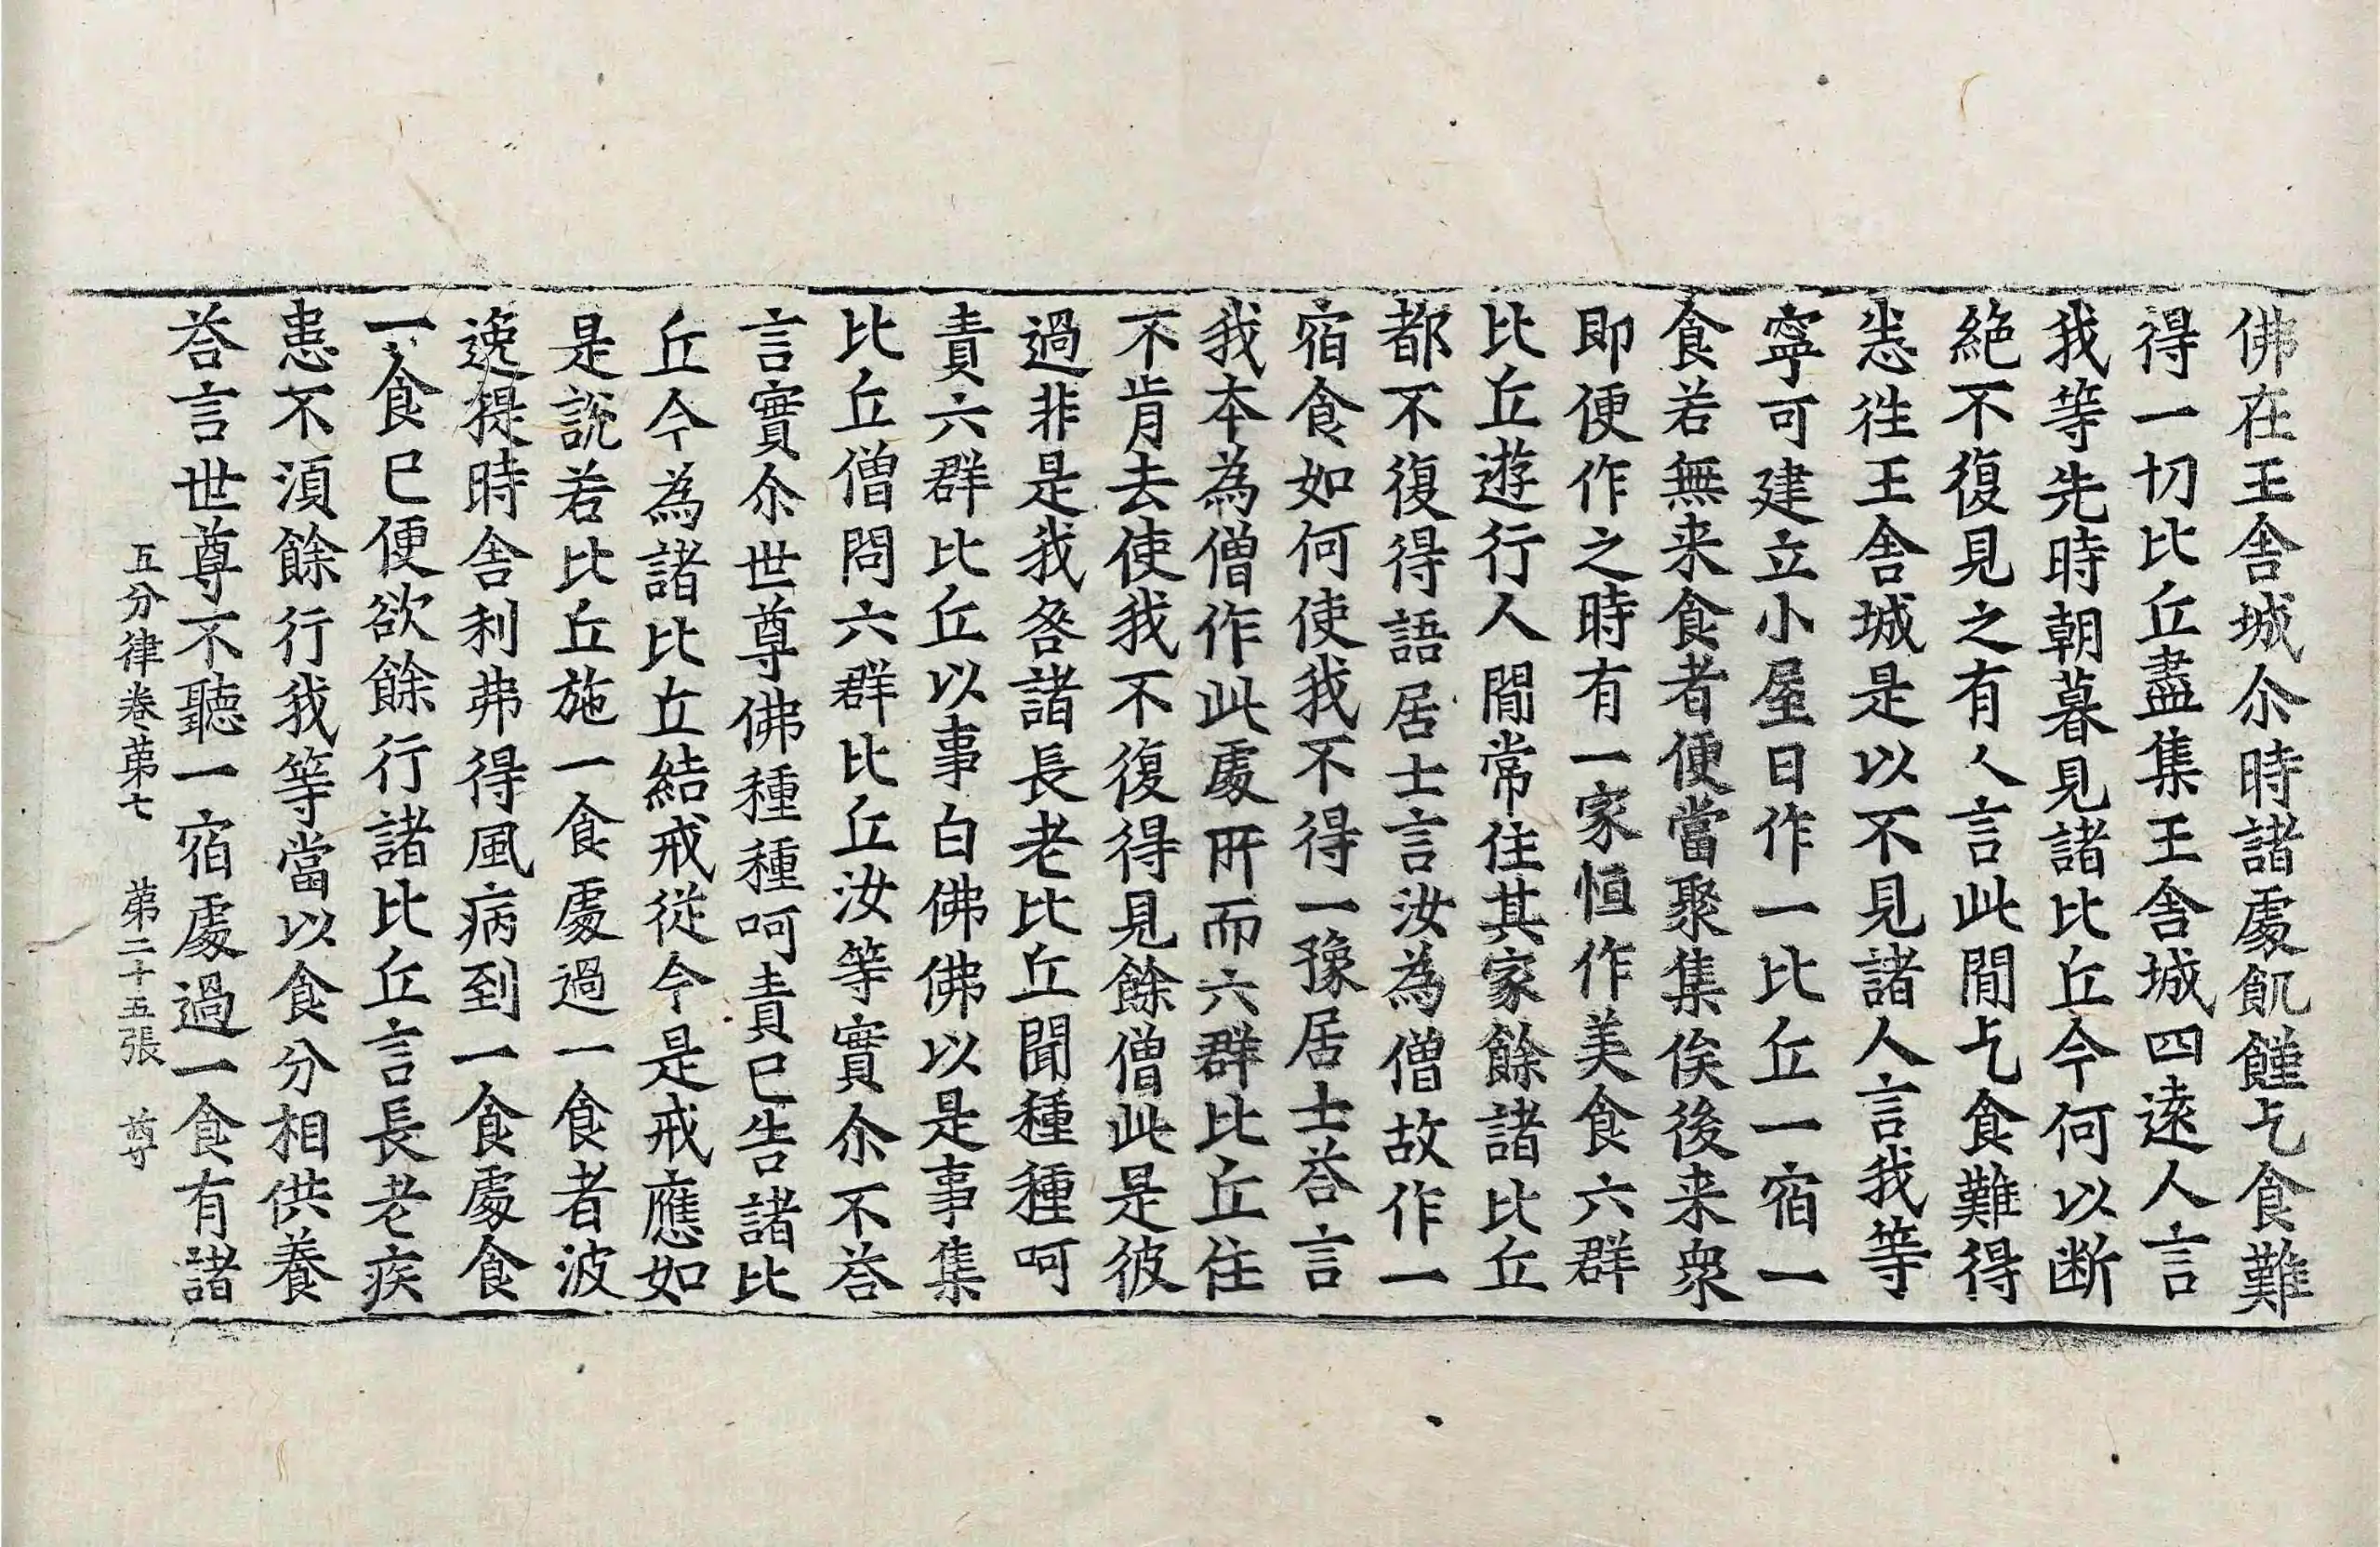 佛在王舍城尒時諸處飢饉乞食難
得一切比丘盡集王舍城四遠人言
我等先時朝暮見諸比丘今何以断
絶不復見之有人言此閒乞食難得
悉徃王舍城是以不見諸人言我等
寧可建立小屋日作一比丘一宿一
食若無来食者便當聚集俟後来衆
即便作之時有一家恒作美食六群
比丘遊行人閒常住其家餘諸比丘
都不復得語居士言汝為僧故作一
宿食如何使我不得一豫居士荅言
我本為僧作此處所而六群比丘住
不肯去使我不復得見餘僧此是彼
過非是我咎諸長老比丘聞種種呵
責六群比丘以事白佛佛以是事集
比丘僧問六群比丘汝等實尒不荅
言實尒世尊佛種種呵責已告諸比
丘今為諸比丘結戒從今是戒應如
是說若比丘施一食處過一食者波
逸提時舍利弗得風病到一食處食
一食已便欲餘行諸比丘言長老疾
患不湏餘行我等當以食分相供養
荅言世尊不聽一宿處過一食有諸
五分律卷第七 第二十五張 尊